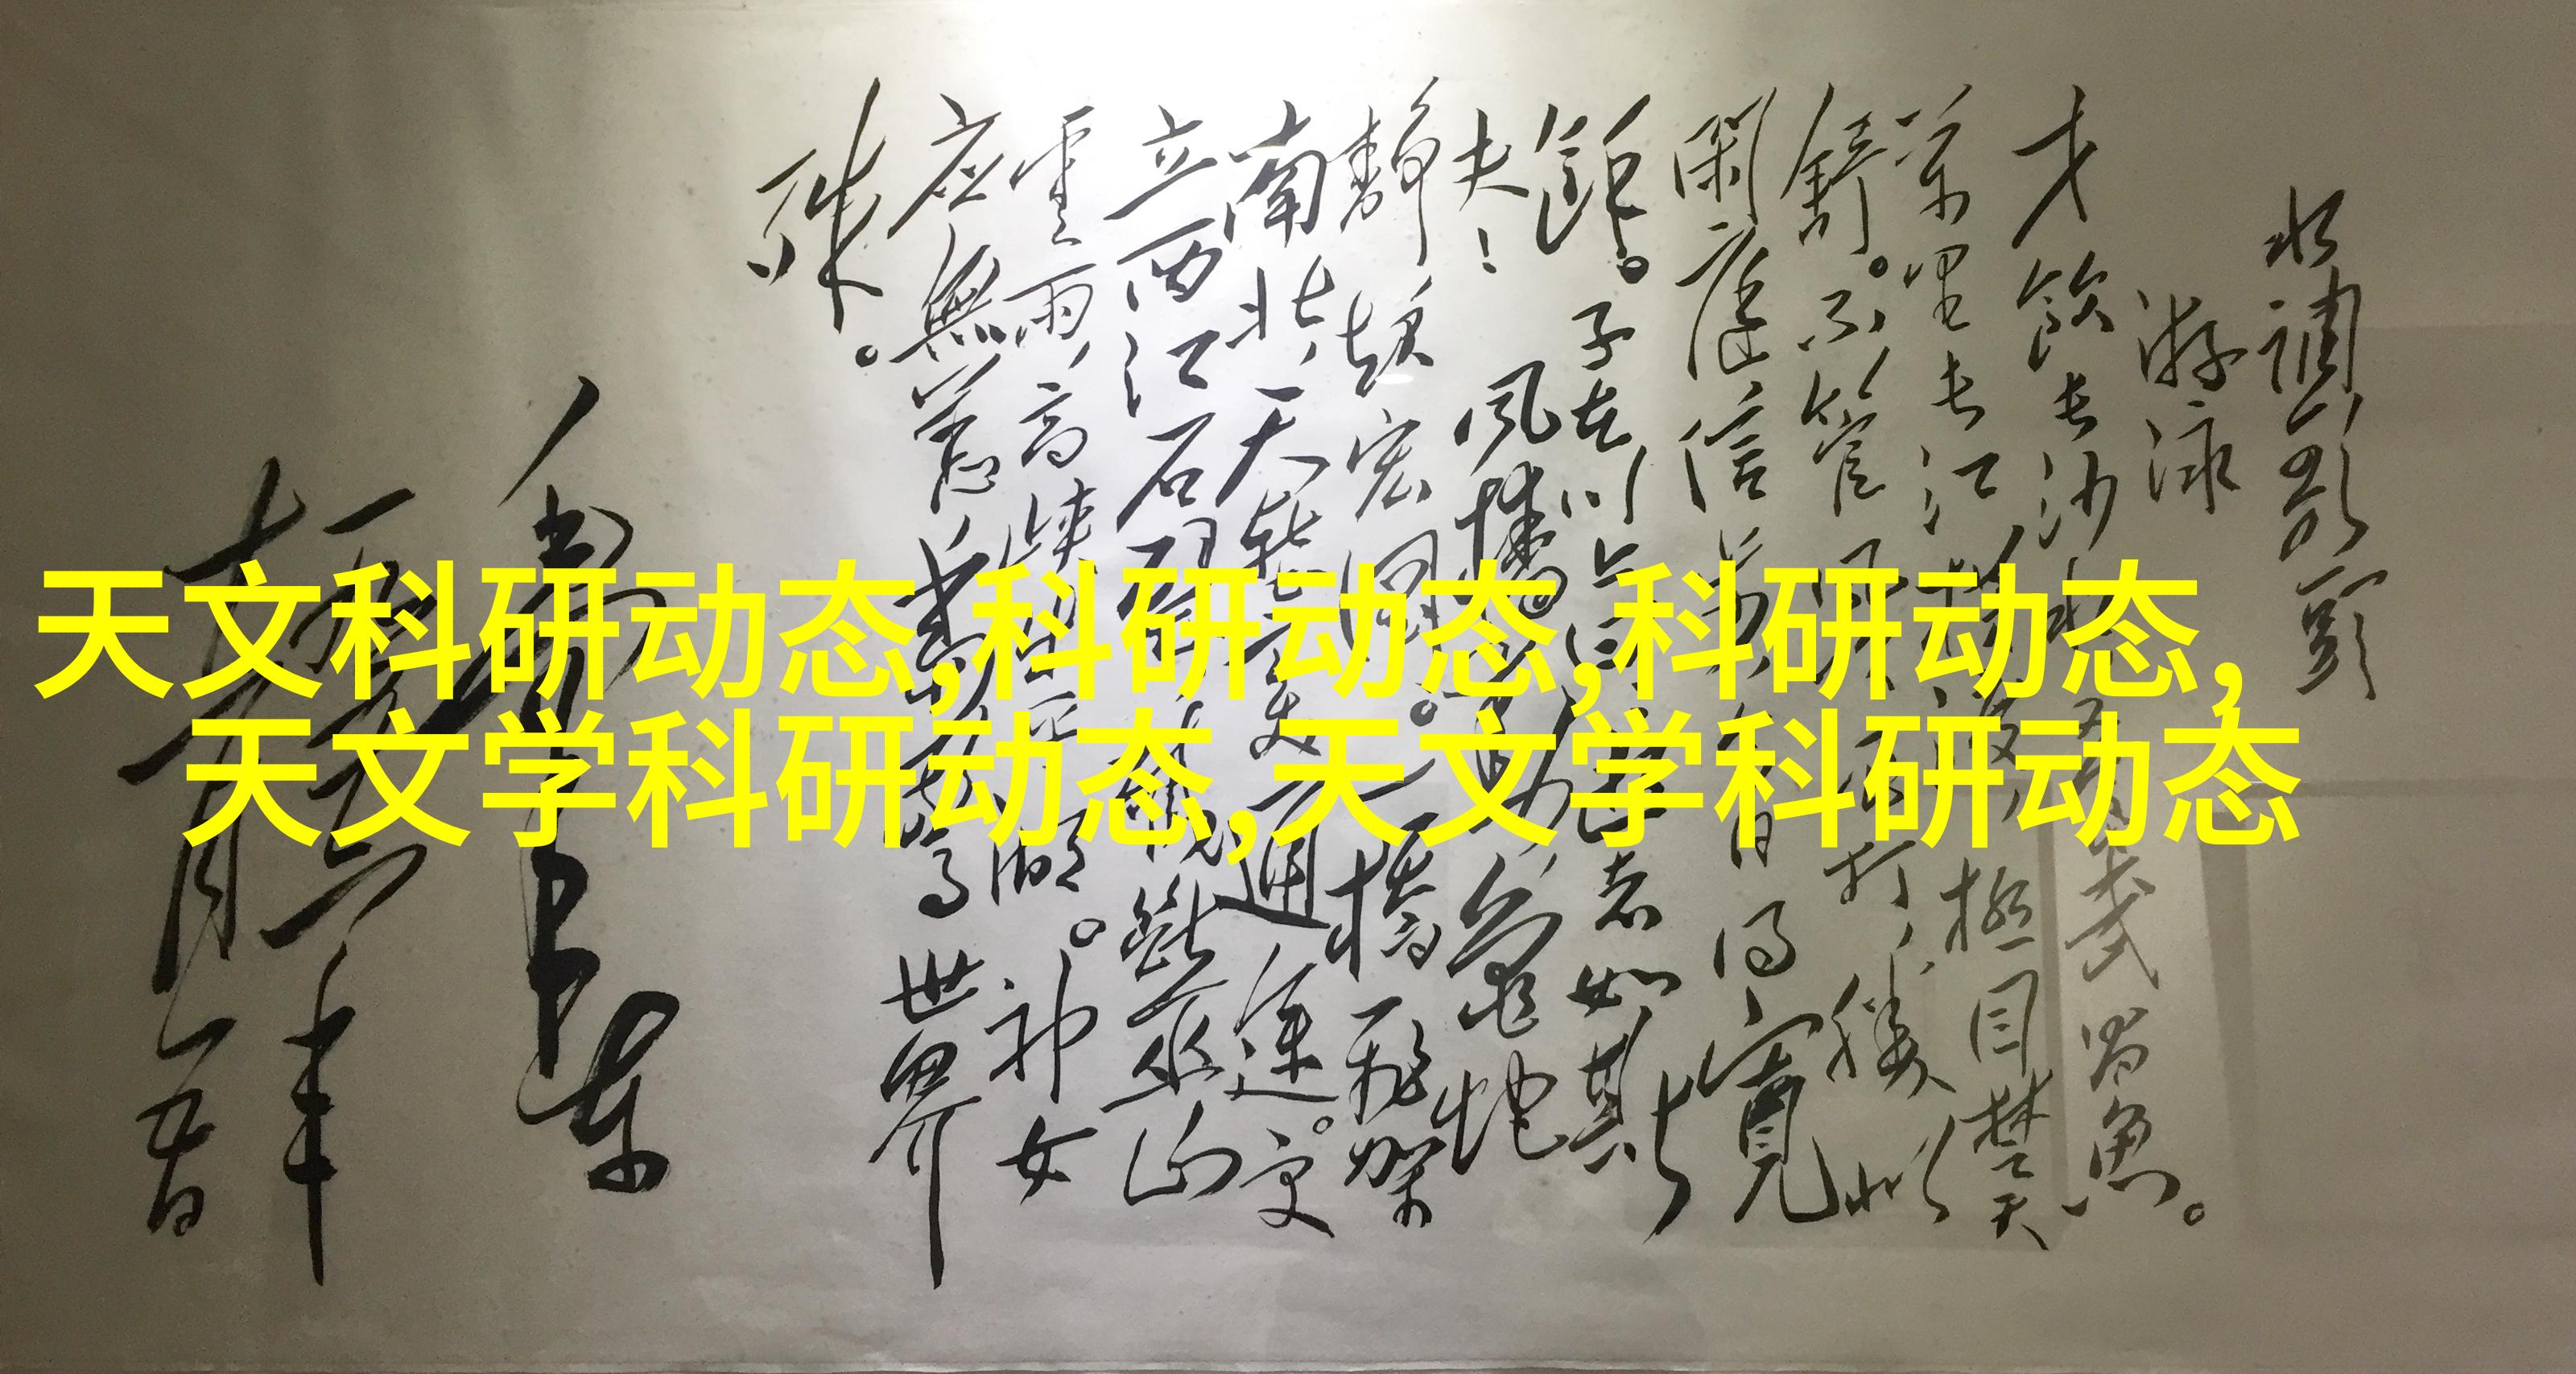 水调歌头
游泳
才饮长沙水又食武昌鱼。
万里长江横渡,极目楚天
舒。不管风吹浪打,胜似
闲庭信步,今日得宽
馀。子在川上曰:逝者如斯
夫!风樯动,龟蛇
静,起宏图。一桥飞架
南北,天堑变通途。更
立西江石壁,截断巫山
云雨,高峡出平湖。神女
应無恙,当惊世界
殊。
天文科研动态,科研动态,科研动态,
天文学科研动态,天文学科研动态